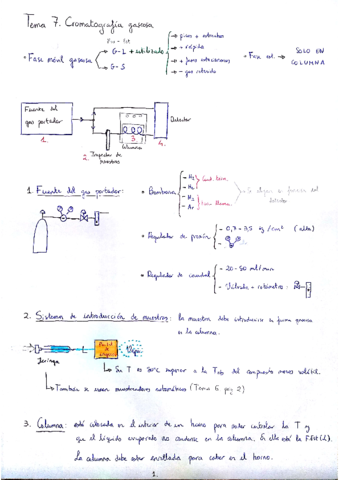 Tema 7. Cromatografía gaseosa
Fase móvil gaseosa
G-L + utilizado
G-S
+ rápido
Fase est.
SOLO EN
COLUMNA
Fuente del
gas portador
1.
2. Inyector de
muestras
3.
Columna
Detector
4.
1. Fuente del gas portador:
Bombona
- H2
- He
- N2
- Ar
Regulador de presión
(alta)
Regulador de caudal
- 20-50 ml/min
- Válvula + rotámetro:
2. Sistema de introducción de muestras: la muestra debe introducirse en forma gaseosa
en la columna.
Jeringa
Su T es 50ºC superior a la Teb del compuesto menos volátil.
También se usan muestreadores automáticos (Tema 6 pag 2)
3. Columna: está colocada en el interior de un horno para poder controlar la T y
que el líquido evaporado no condense en la columna. En ella está la F.Est (L).
La columna debe estar enrollada para caber en el horno.
1.